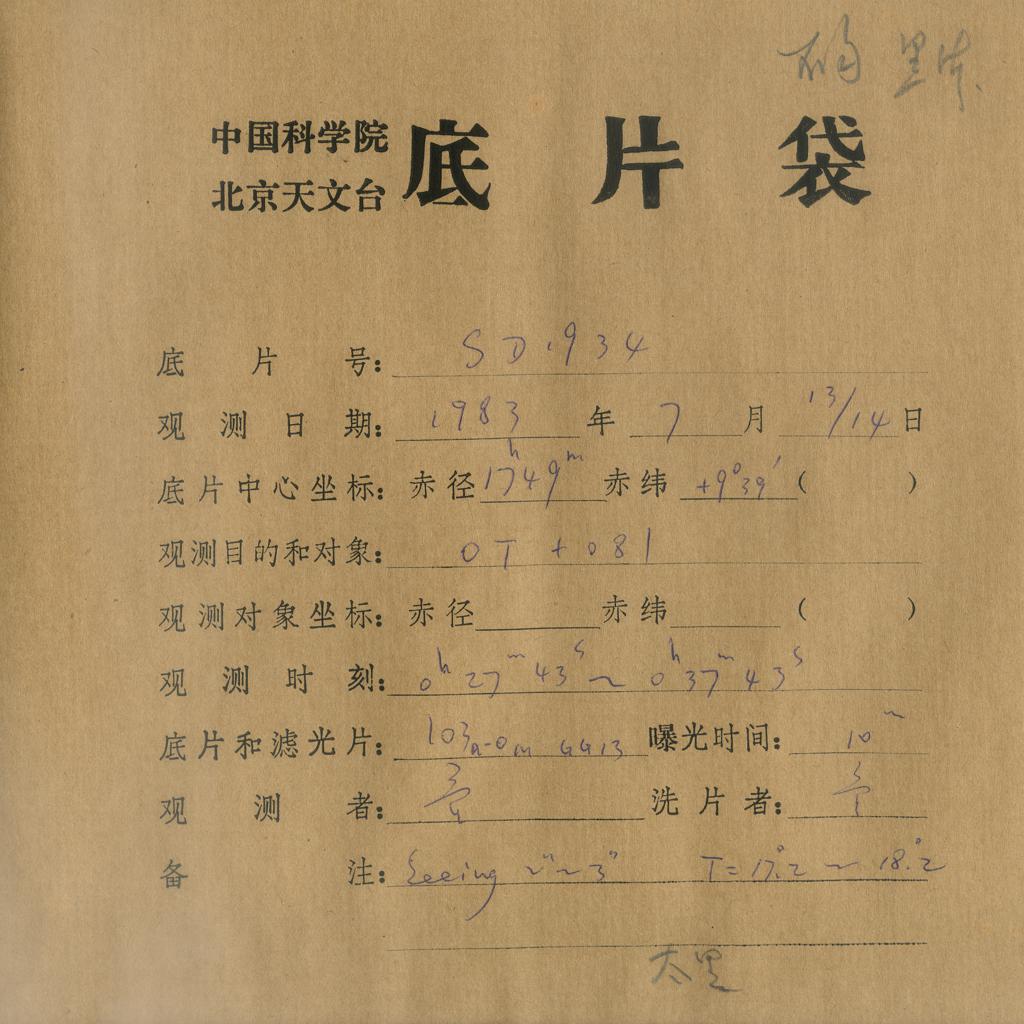 中国科学院
北京天文台
底片袋
底片号: SD.934
观测日期: 1983 年 7 月 13/14 日
底片中心坐标: 赤径 17ʰ49ᵐ 赤纬 +9°39′ ( )
观测目的和对象: OT +081
观测对象坐标: 赤径 赤纬 ( )
观测时刻: 0ʰ27ᵐ43ˢ ~ 0ʰ37ᵐ43ˢ
底片和滤光片: 103a-O GG13 曝光时间: 10ᵐ
观测者: 洗片者:
备注: Seeing ~ 3" T=17.°2 ~ 18.°2
太黑